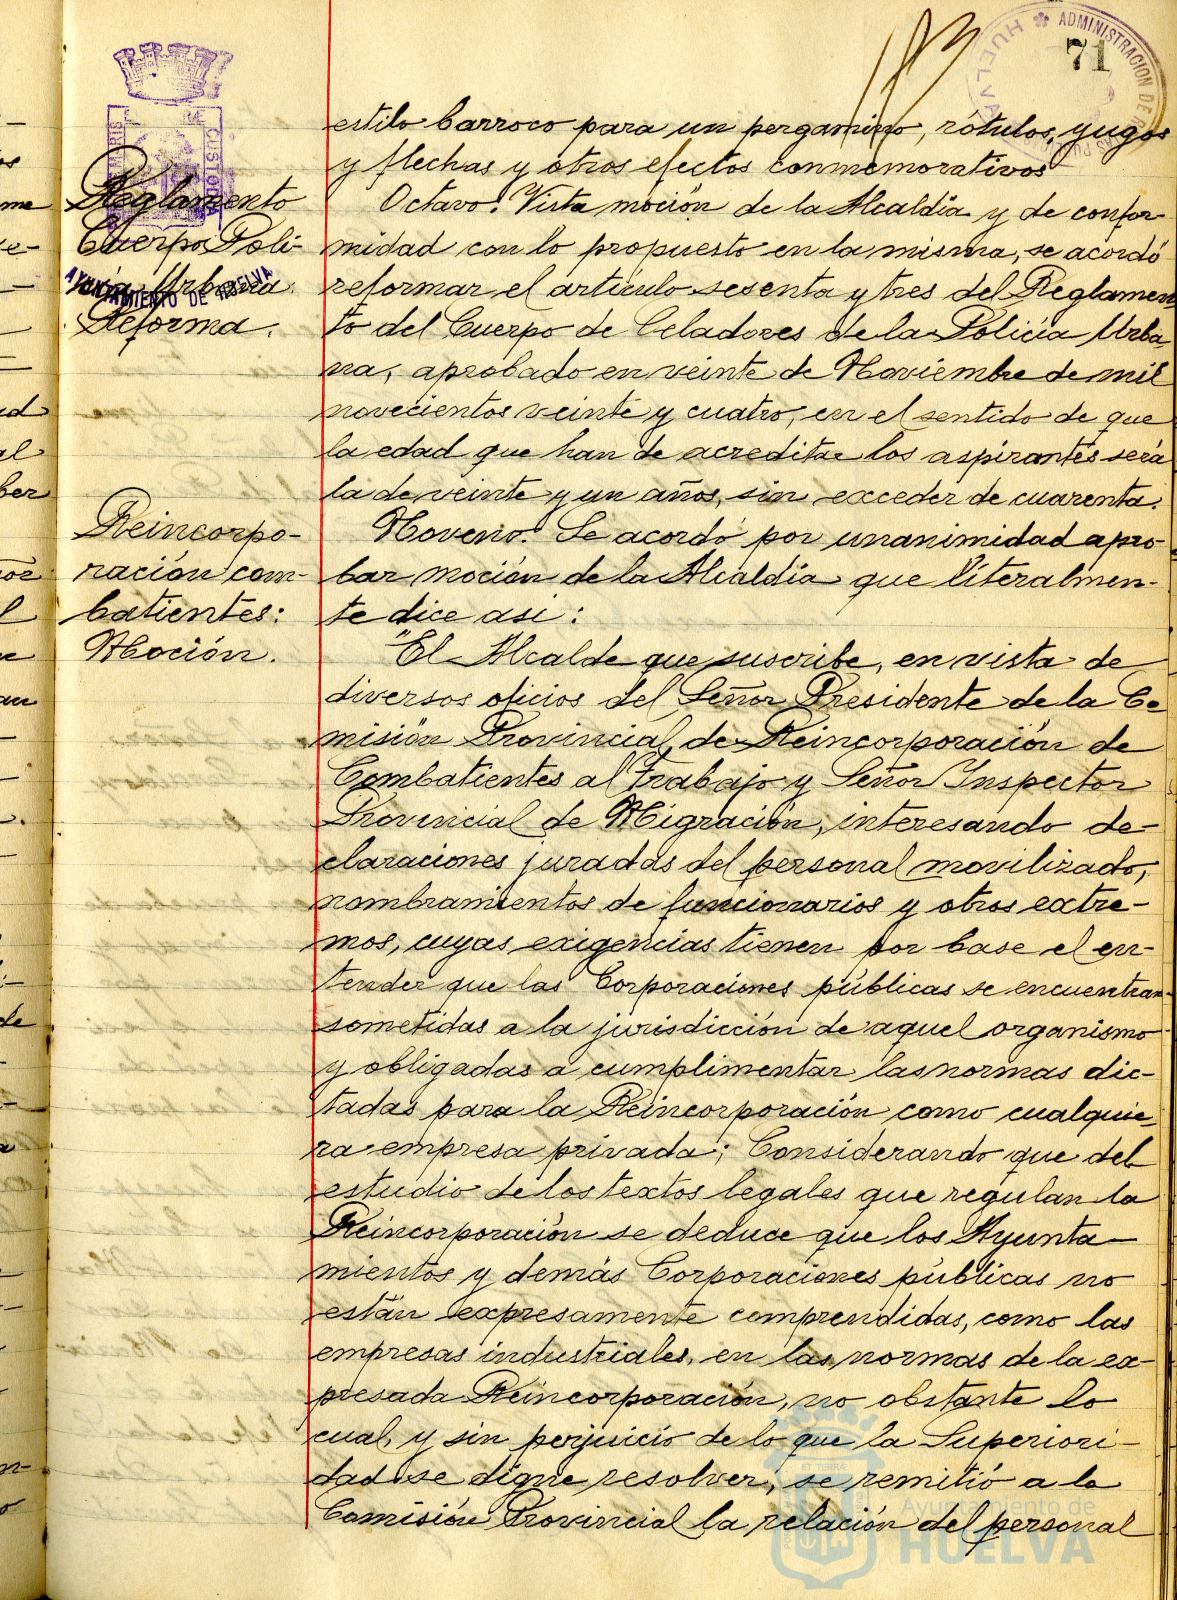 71
ADMINISTRACION DE
HUELVA
estilo barroco para un pergamino, rótulos, yugos
y flechas y otros efectos conmemorativos
Reglamento
Cuerpo Poli-
cía Urbana.
Reforma.
AYUNTAMIENTO DE HUELVA
Octavo: Vista moción de la Alcaldía y de confor-
midad con lo propuesto en la misma, se acordó
reformar el artículo sesenta y tres del Reglamen-
to del Cuerpo de Celadores de la Policía Urba
na, aprobado en veinte de Noviembre de mil
novecientos veinte y cuatro, en el sentido de que
la edad que han de acreditar los aspirantes será
la de veinte y un años, sin exceder de cuarenta.
Reincorpo-
ración com-
batientes:
Moción.
Noveno: Se acordó por unanimidad apro-
bar moción de la Alcaldía que literalmen-
te dice así:
"El Alcalde que suscribe, en vista de
diversos oficios del Señor Presidente de la Co
misión Provincial de Reincorporación de
Combatientes al Trabajo y Señor Inspector
Provincial de Migración, interesando de-
claraciones juradas del personal movilizado,
nombramientos de funcionarios y otros extre-
mos, cuyas exigencias tienen por base el en-
tender que las Corporaciones públicas se encuentran
sometidas a la jurisdicción de aquel organismo
y obligadas a cumplimentar las normas dic-
tadas para la Reincorporación como cualquie
ra empresa privada; Considerando que del
estudio de los textos legales que regulan la
Reincorporación se deduce que los Ayunta-
mientos y demás Corporaciones públicas no
están expresamente comprendidas, como las
empresas industriales, en las normas de la ex-
presada Reincorporación, no obstante lo
cual, y sin perjuicio de lo que la Superiori-
dad se digne resolver, se remitió a la
Comisión Provincial la relación del personal
Ayuntamiento de
HUELVA